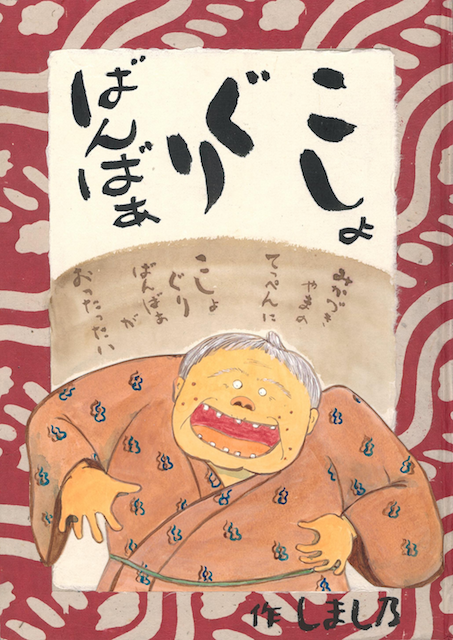 こしょ
ぐり
ばんばぁ
みかづき
やまの
てっぺんに
こしょ
ぐり
ばんばぁ
が
おったったい
作 しまし乃